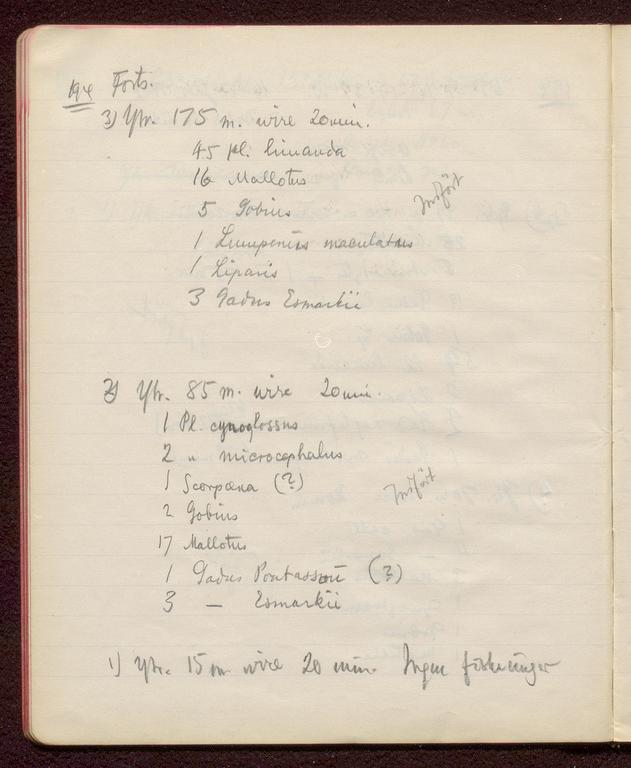 194 Forts.
3) Ytr. 175 m. wire 20 min.
45 pl. limanda
16 Mallotus
5 Gobius
Indført
1 Lumpenus maculatus
1 Liparis
3 Gadus Esmarkii
2) Ytr. 85 m. wire 20 min.
1 Pl. cynoglossus
2 " microcephalus
1 Scorpæna (?)
Indført
2 Gobius
17 Mallotus
1 Gadus Poutassou (?)
3 — Esmarkii
1) Ytr. 15 m wire 20 min. Ingen fiskeunger